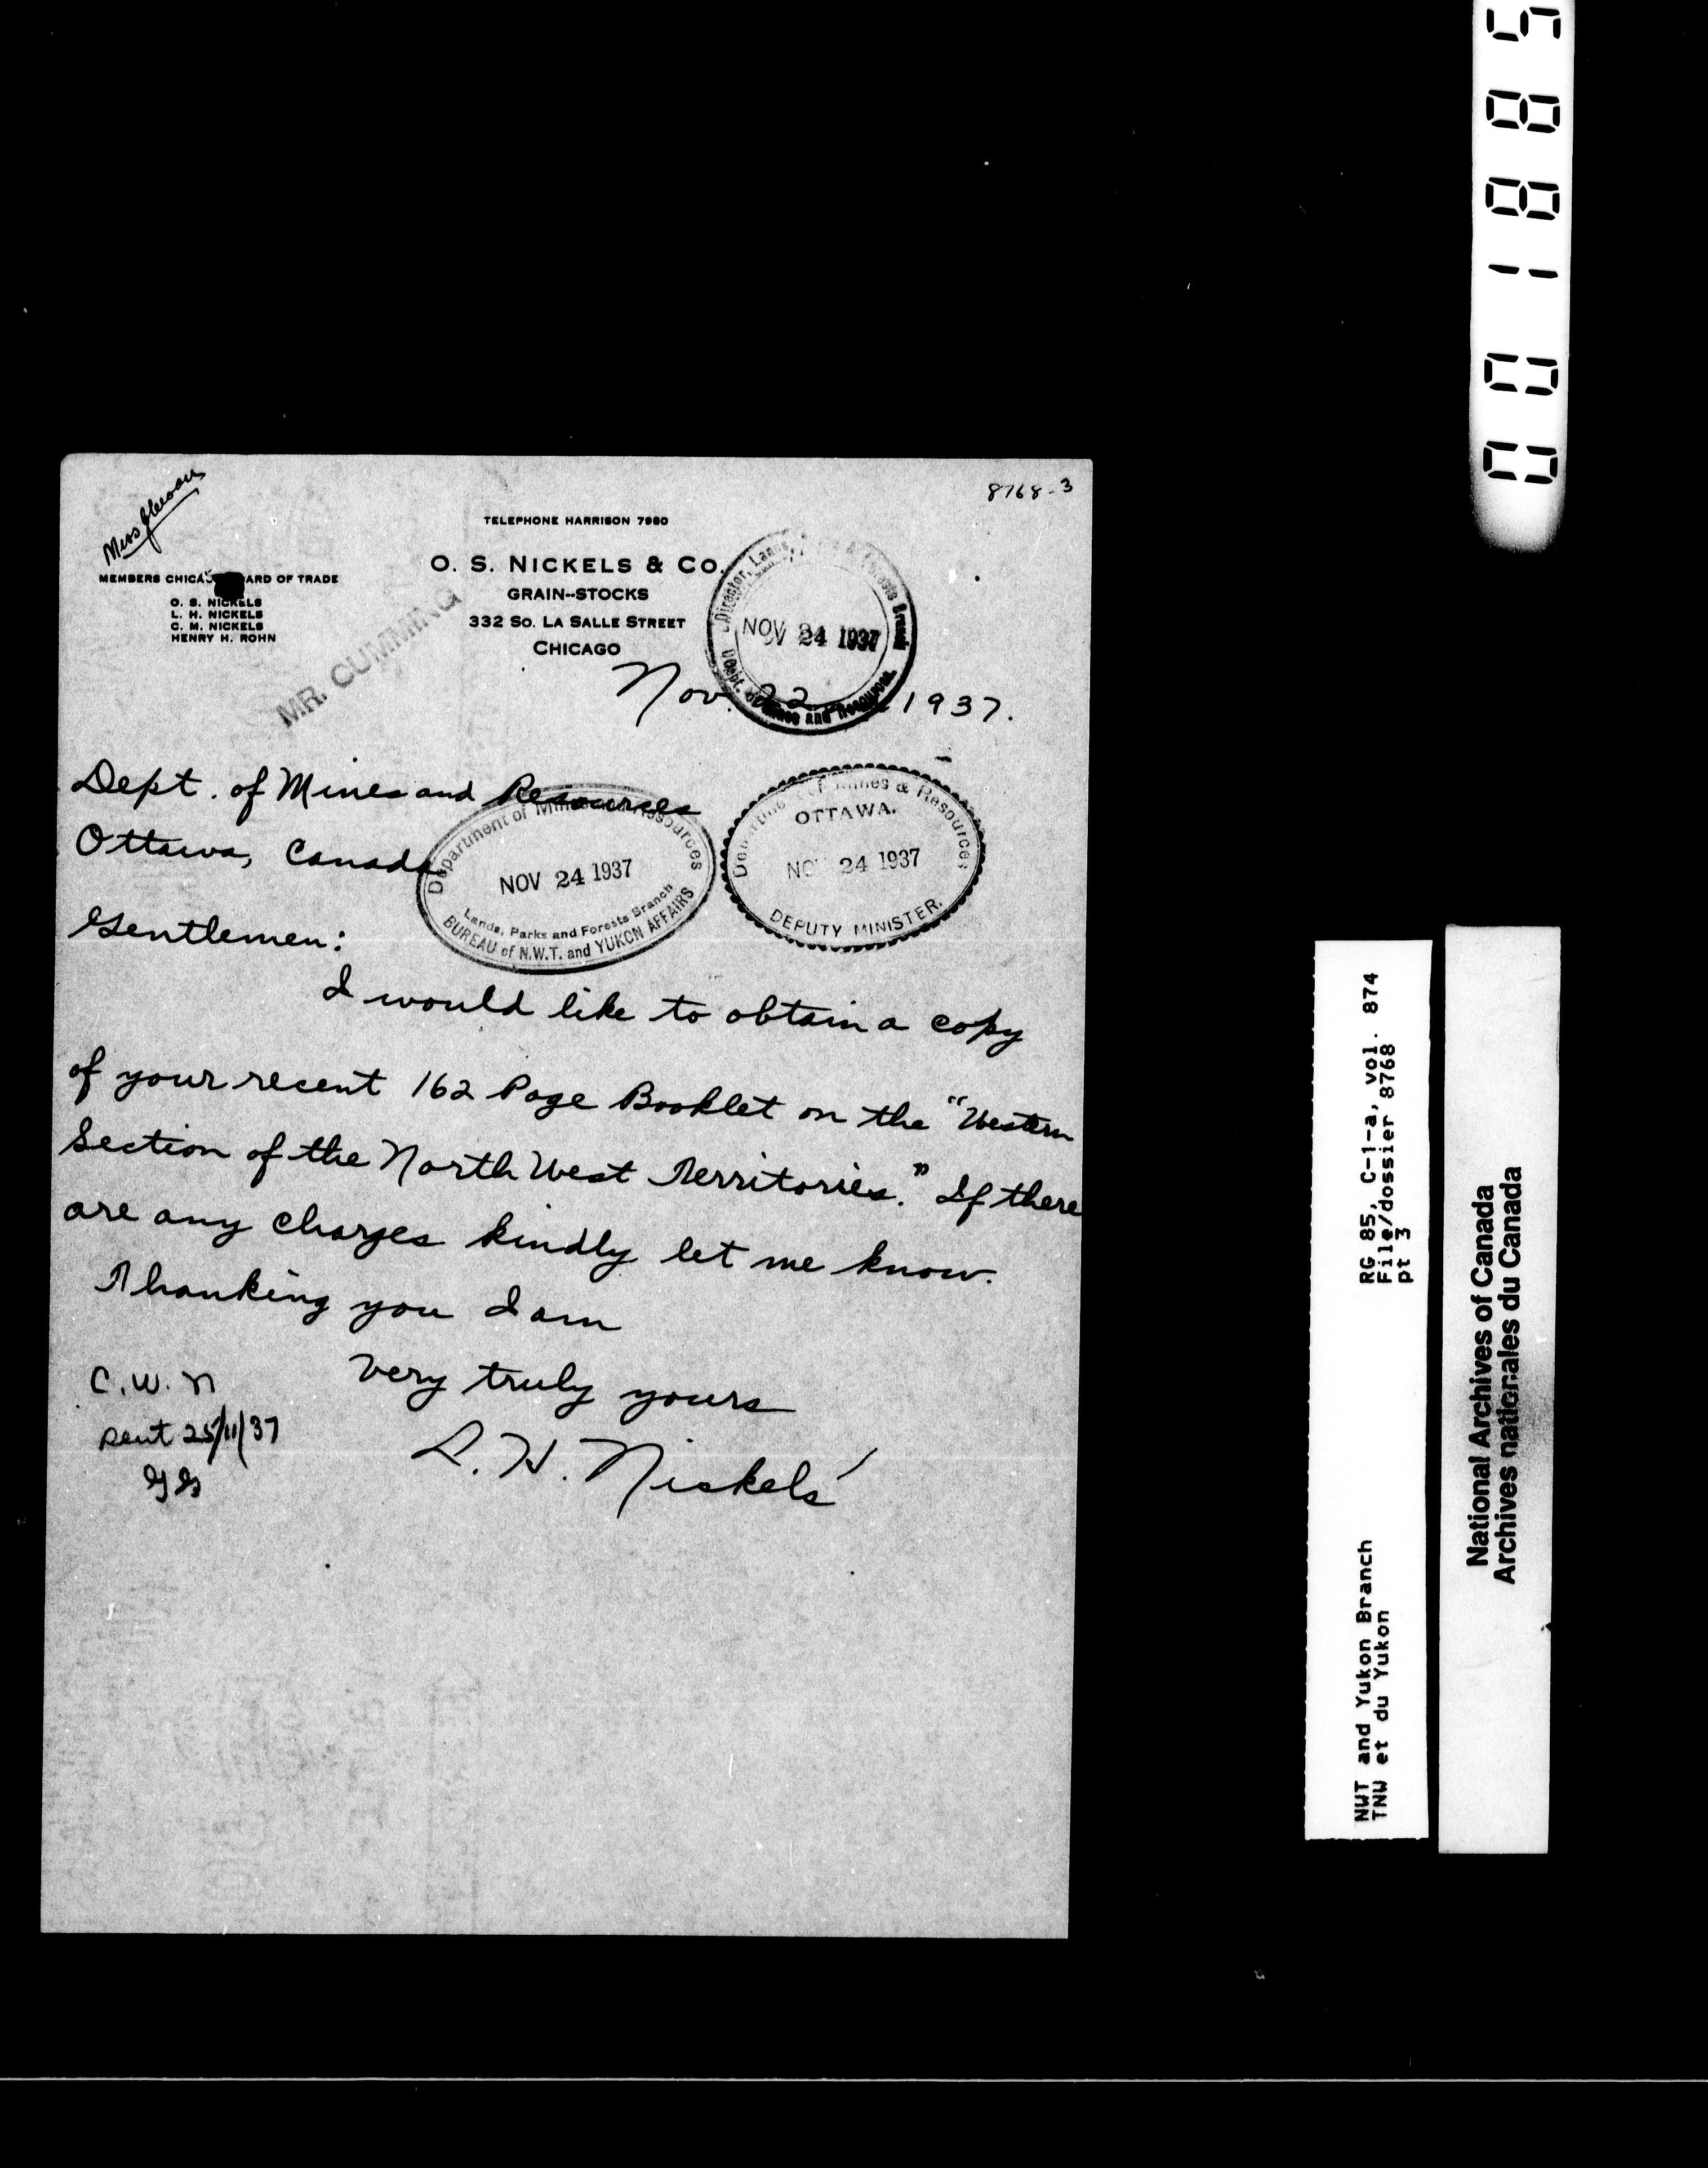 8768-3
Miss
TELEPHONE HARRISON 7980
O. S. NICKELS & CO.
GRAIN--STOCKS
332 SO. LA SALLE STREET
CHICAGO
MEMBERS CHICA ARD OF TRADE
O. S. NICKELS
L. H. NICKELS
C. M. NICKELS
HENRY H. ROHN
MR. CUMMING
Director, Lands, & Forests Branch
NOV 24 1937
Dept. of Mines and Resources.
Nov. 22 1937.
Dept. of Mines and Resources
Ottawa, Canada
Department of Mines and Resources
NOV 24 1937
Lands, Parks and Forests Branch
BUREAU of N.W.T. and YUKON AFFAIRS
Department of Mines & Resources
OTTAWA.
NOV 24 1937
DEPUTY MINISTER.
Gentlemen:
I would like to obtain a copy
of your recent 162 Page Booklet on the "Western
Section of the North West Territories." If there
are any charges kindly let me know.
Thanking you I am
Very truly yours
L. H. Nickels
C.W.N
sent 25/11/37
GG
001885
RG 85, C-1-a, vol. 874
File/dossier 8768
pt 3
NWT and Yukon Branch
TNW et du Yukon
National Archives of Canada
Archives nationales du Canada